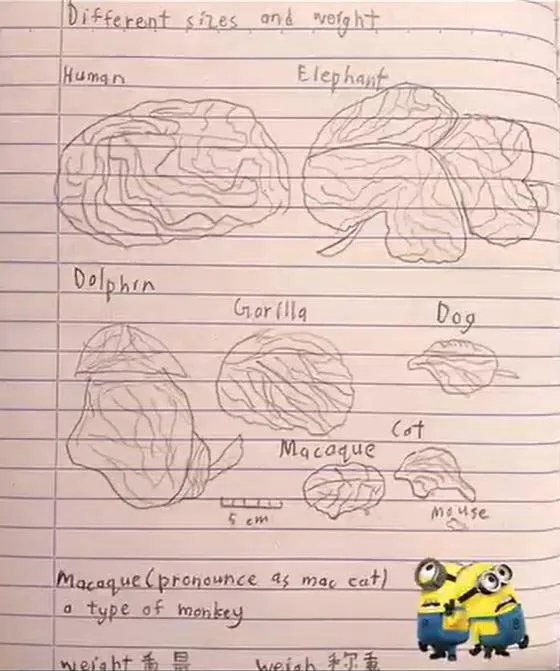 Different sizes and weight
Human
Elephant
Dolphin
Gorilla
Dog
Cat
Macaque
Mouse
5 cm
Macaque(pronounce as mac cat)
a type of monkey
weight 重量 weigh 称重